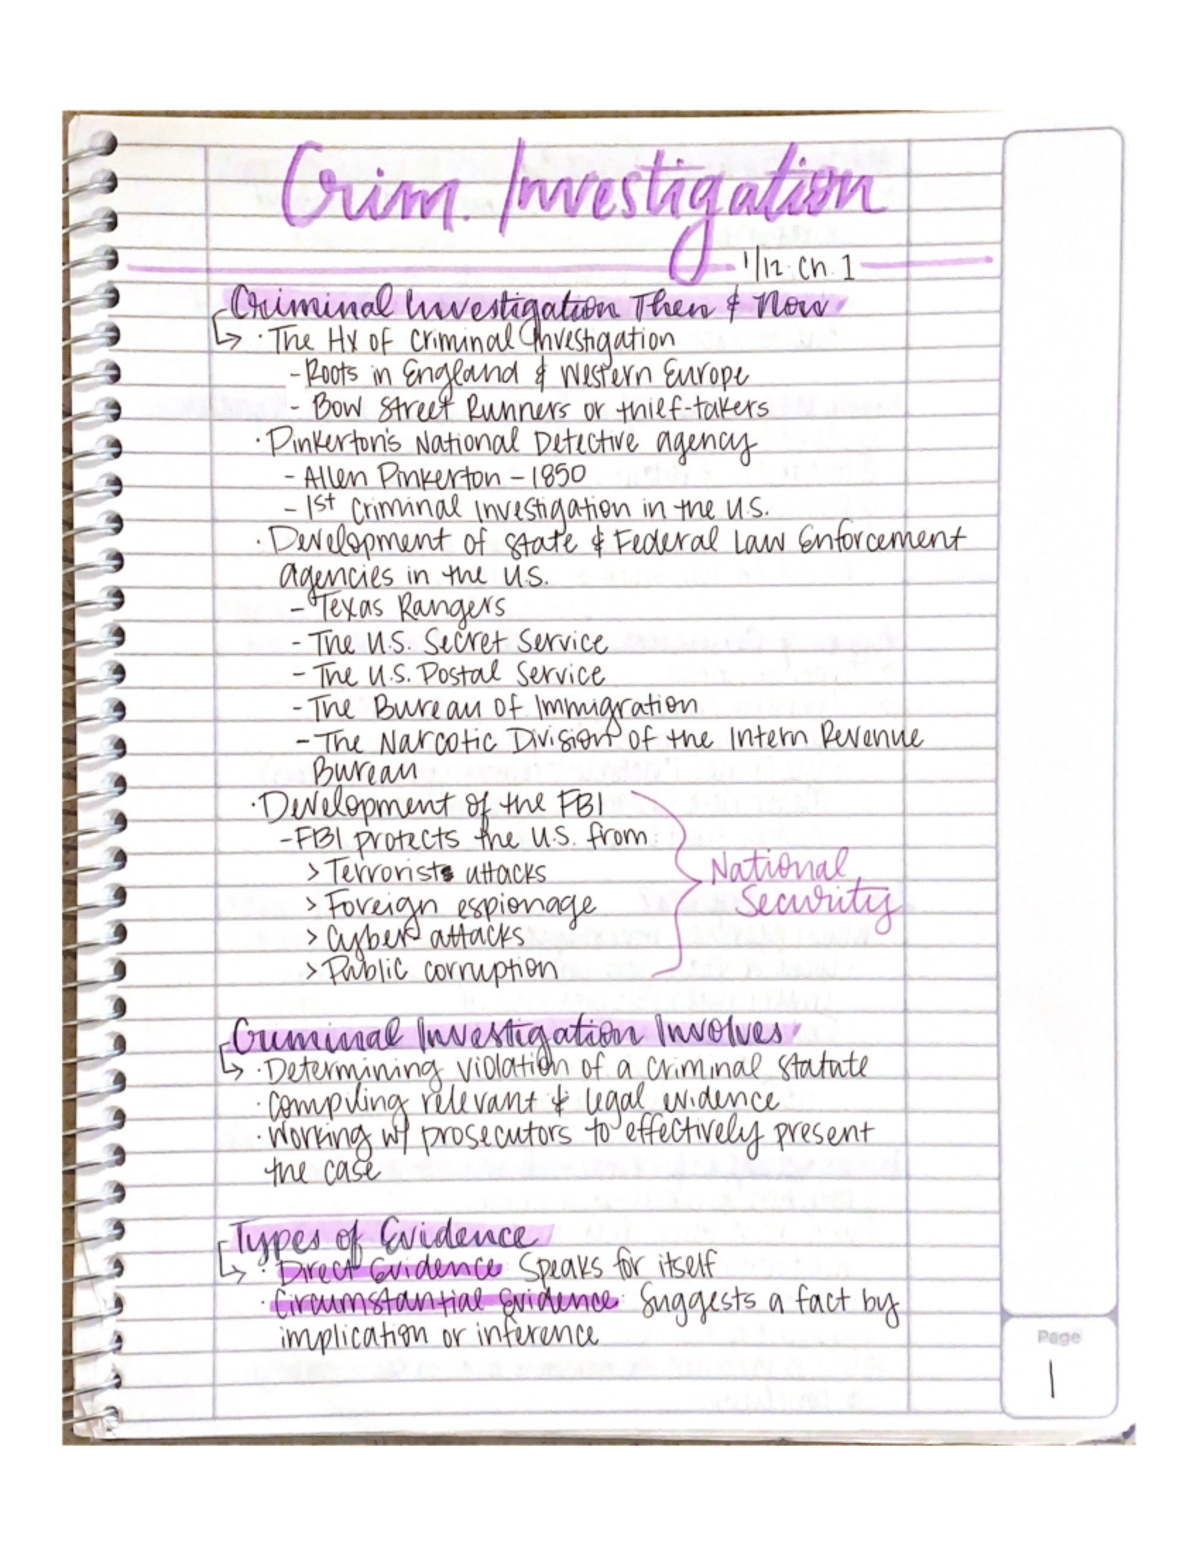 Crim. Investigation
1/12 Ch. 1
Criminal Investigation Then & Now
↳ · The Hx of Criminal Investigation
- Roots in England & Western Europe
- Bow Street Runners or thief-takers
· Pinkerton's National Detective agency
- Allen Pinkerton - 1850
- 1st Criminal Investigation in the U.S.
· Development of State & Federal Law Enforcement
agencies in the U.S.
- Texas Rangers
- The U.S. Secret Service
- The U.S. Postal Service
- The Bureau of Immigration
- The Narcotic Division of the Intern Revenue
Bureau
· Development of the FBI
- FBI protects the U.S. from
> Terrorist attacks
> Foreign espionage
> Cyber attacks
> Public corruption
National
Security
Criminal Investigation Involves
↳ · Determining violation of a criminal statute
· Compiling relevant & legal evidence
· Working w/ prosecutors to effectively present
the case
Types of Evidence
↳ · Direct Evidence Speaks for itself
· Circumstantial Evidence: Suggests a fact by
implication or inference
Page
1